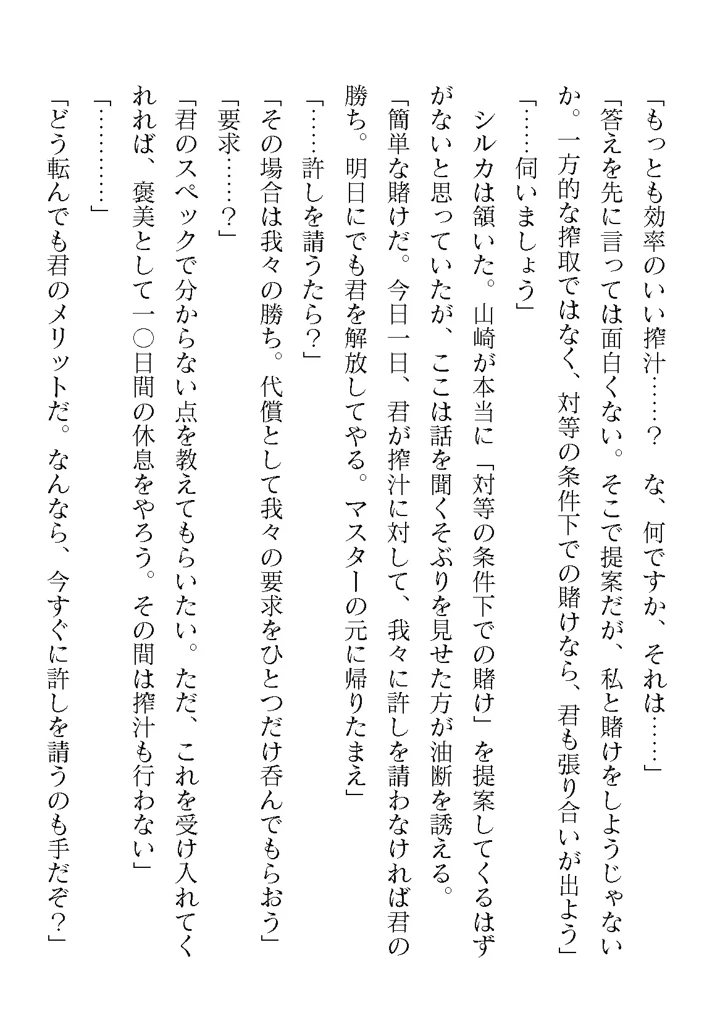 「もっとも効率のいい搾汁……？　な、何ですか、それは……」
「答えを先に言っては面白くない。そこで提案だが、私と賭けをしようじゃない
か。一方的な搾取ではなく、対等の条件下での賭けなら、君も張り合いが出よう」
「……伺いましょう」
　シルカは頷いた。山崎が本当に「対等の条件下での賭け」を提案してくるはず
がないと思っていたが、ここは話を聞くそぶりを見せた方が油断を誘える。
「簡単な賭けだ。今日一日、君が搾汁に対して、我々に許しを請わなければ君の
勝ち。明日にでも君を解放してやる。マスターの元に帰りたまえ」
「……許しを請うたら？」
「その場合は我々の勝ち。代償として我々の要求をひとつだけ呑んでもらおう」
「要求……？」
「君のスペックで分からない点を教えてもらいたい。ただ、これを受け入れてく
れれば、褒美として一〇日間の休息をやろう。その間は搾汁も行わない」
「…………」
「どう転んでも君のメリットだ。なんなら、今すぐに許しを請うのも手だぞ？」